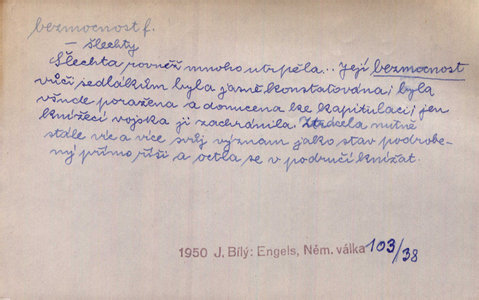 bezmocnost f.
— šlechty
Šlechta rovněž mnoho utrpěla.. Její bezmocnost
vůči sedlákům byla jasně konstatována; byla
všude poražena a donucena ke kapitulaci; jen
knížecí vojska ji zachránila. Ztrácela nutně
stále víc a více svůj význam jako stav podrobe-
ný přímo říši a octla se v područí knížat.
1950 J. Bílý: Engels, Něm. válka 103/38